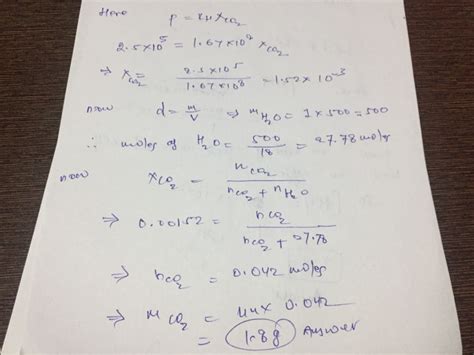 Here p = KH X CO2
2.5×10^5 = 1.67×10^8 X CO2
⇒ X CO2 = 2.5×10^5 / 1.67×10^8 = 1.52×10^-3
now d = m/V ⇒ mH2O = 1×500 = 500
∴ moles of H2O = 500/18 = 27.78 moles
now X CO2 = nCO2 / nCO2 + nH2O
⇒ 0.00152 = nCO2 / nCO2 + 27.78
⇒ nCO2 = 0.042 moles
⇒ mCO2 = 44 × 0.042
= 1.8g Answer